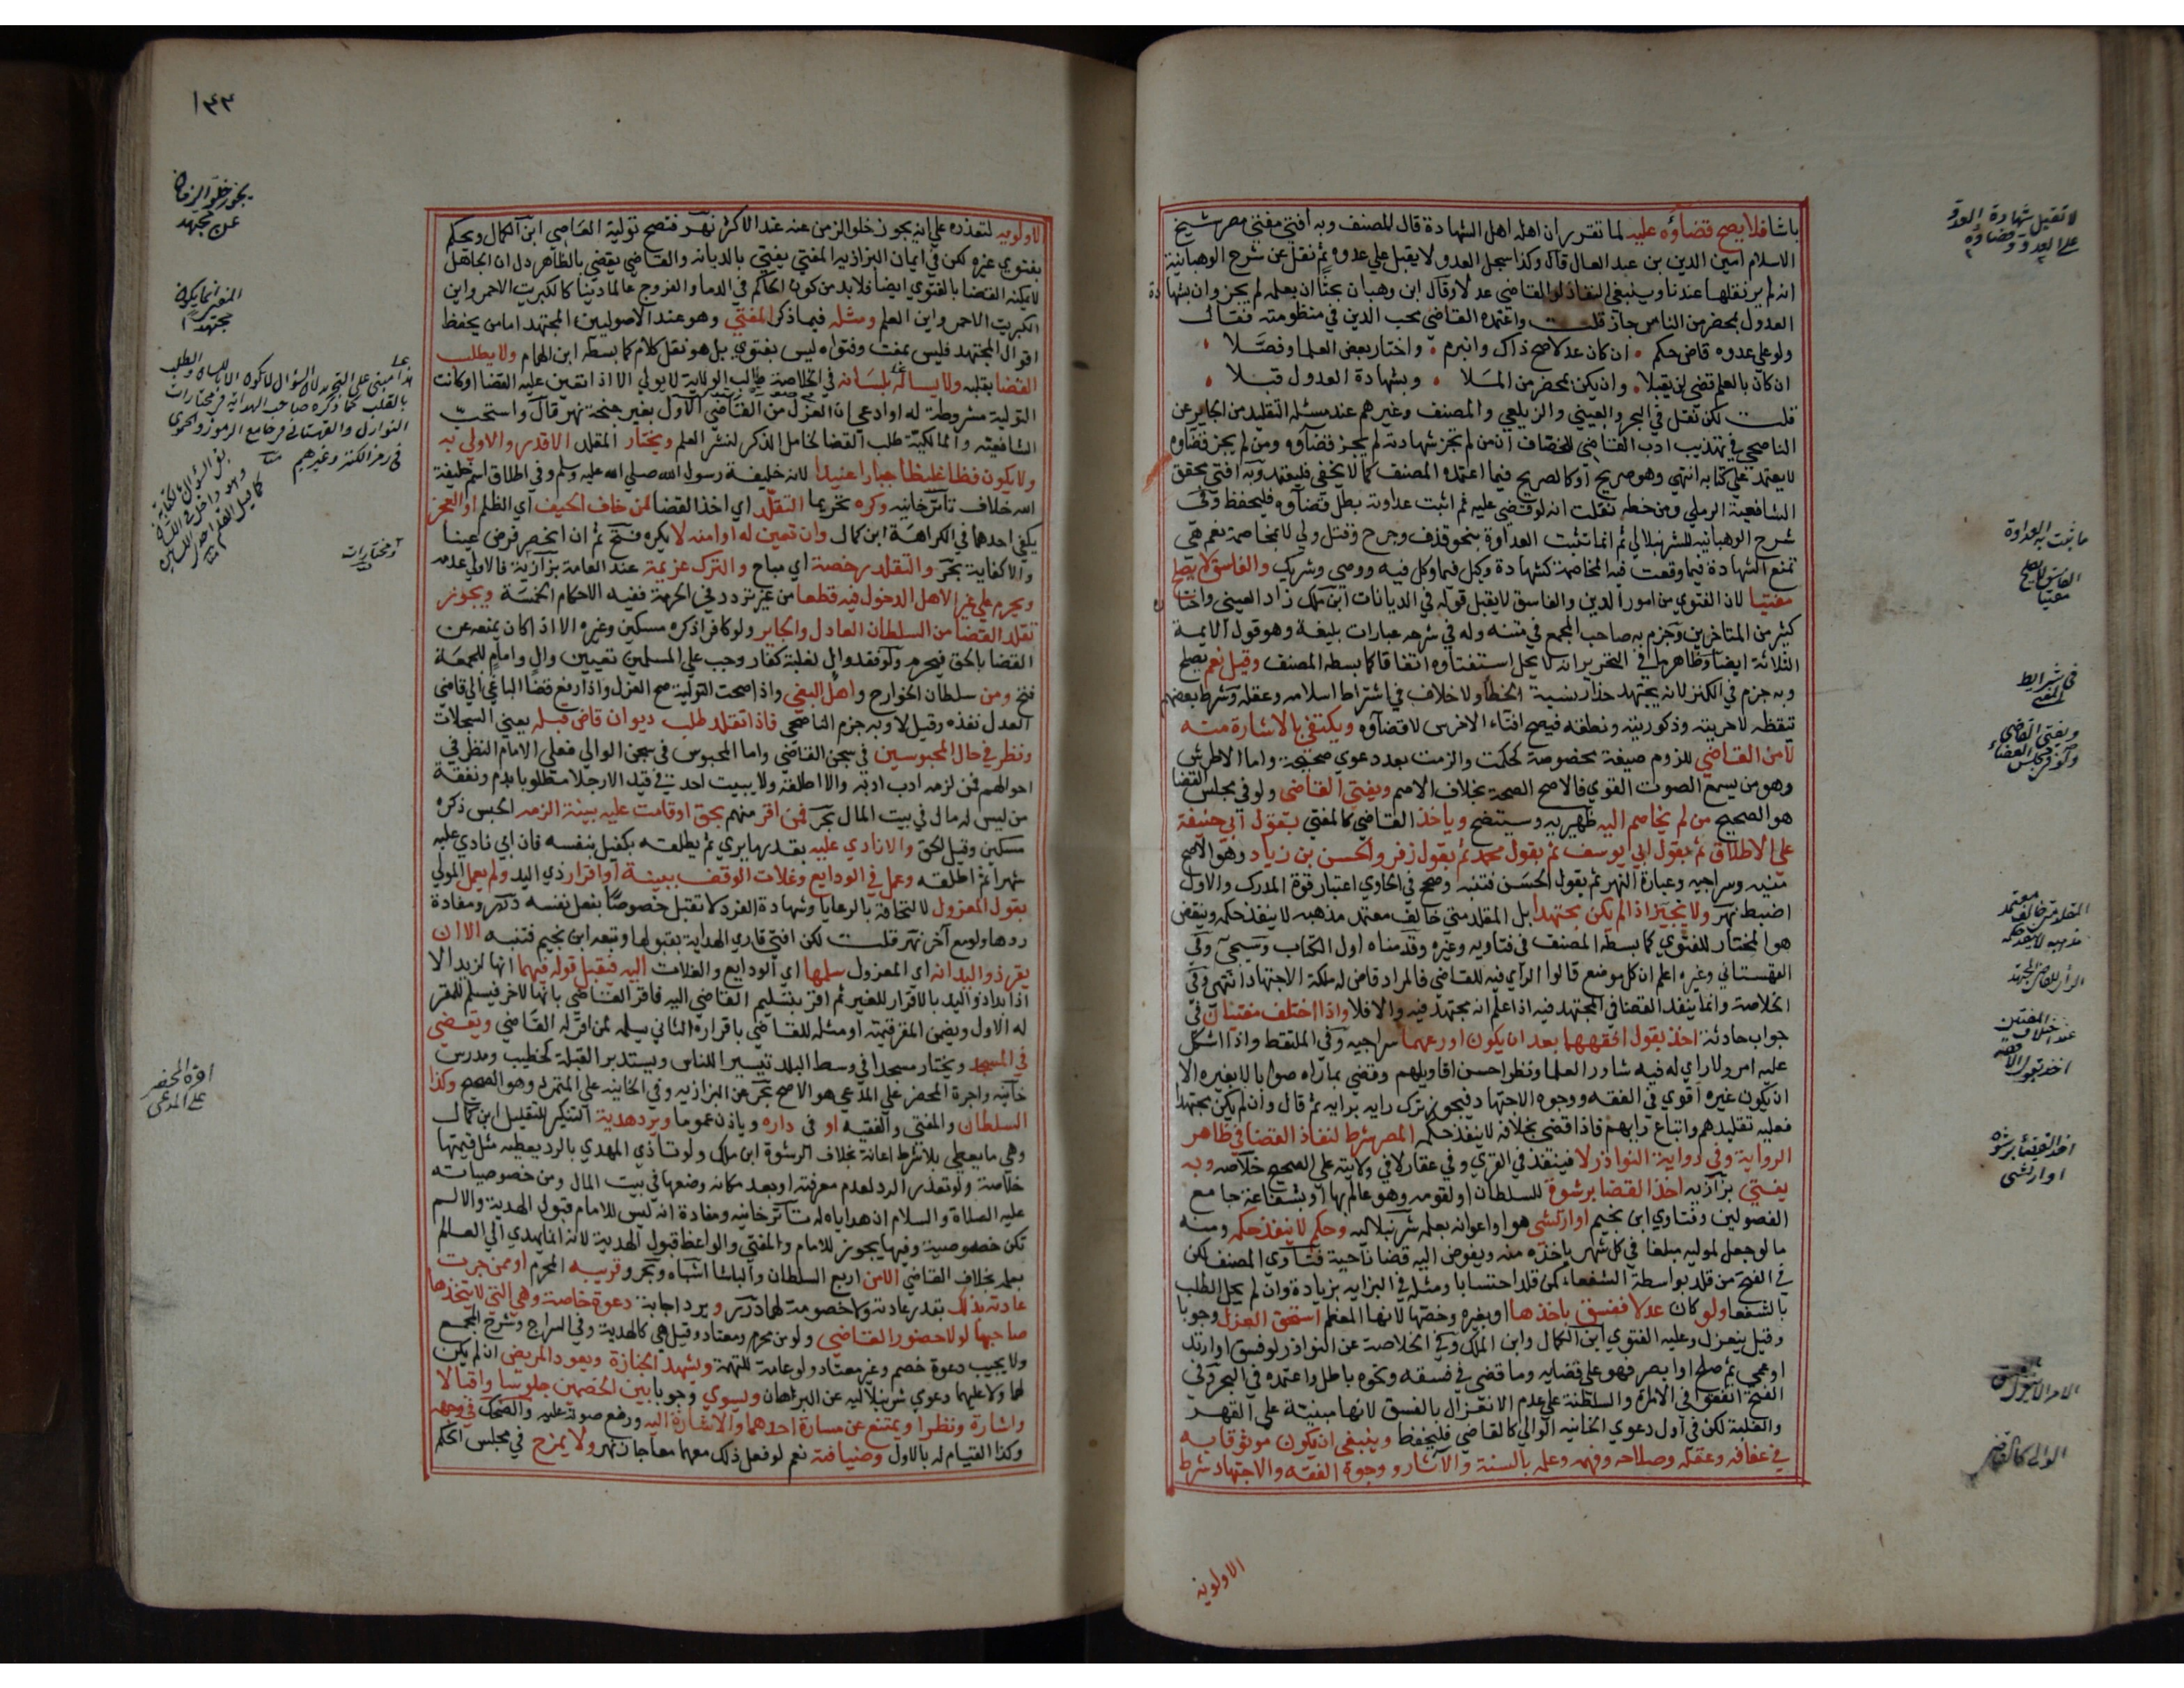 باشا فلا يصح قضاؤه عليه لما تقرر ان اهله اهل الشهادة قال المصنف وبه افتى مفتي مصر شيخ
الاسلام امين الدين بن عبد العال قال وكذا سجل العدو لا يقبل على عدوه ثم نقل عن شرح الوهبانية
انه لم ير نقلها عندنا وينبغي النفاذ لو القاضي عدلا وقال ابن وهبان بحثا ان بعلمه لم يجز وان بشهادة
العدول بمحضر من الناس جاز قلت واعتمده القاضي محب الدين في منظومته فقال
ولو على عدوه قاض حكم ٠ ان كان عدلا صح ذاك وانبرم ٠ واختار بعض العلما وفصلا ٠
ان كان بالعلم قضى لن يقبلا ٠ وان يكن بمحضر من الملا ٠ وبشهادة العدول قبلا ٠
قلت لكن نقل في البحر والعيني والزيلعي والمصنف وغيرهم عند مسئلة التقليد من الجاير عن
الناصحي في تهذيب ادب القاضي للخصاف ان من لم تجز شهادته لم يجز قضاؤه ومن لم يجز قضاوه
لا يعتمد على كتابه انتهى وهو صريح او كالصريح فيما اعتمده المصنف كما لا يخفى فليعتمد وبه افتى محقق
الشافعية الرملي ومن خطه نقلت انه لو قضى عليه ثم اثبت عداوته بطل قضاؤه فليحفظ وفي
شرح الوهبانيه للشرنبلالي ثم انما تثبت العداوة بنحو قذف وجرح وقتل ولي لا بمخاصمة نعم هي
تمنع الشهادة فيما وقعت فيه المخاصمة كشهادة وكيل فيما وكل فيه ووصي وشريك والفاسق لا يصلح
مفتيا لان الفتوى من امور الدين والفاسق لا يقبل قوله في الديانات ابن ملك زاد العيني واختاره
كثير من المتاخرين وجزم به صاحب المجمع في متنه وله في شرحه عبارات بليغة وهو قول الائمة
الثلاثة ايضا وظاهر ما في التحرير انه لا يحل استفتاوه اتفاقا كما بسطه المصنف وقيل نعم يصلح
وبه جزم في الكنز لانه يجتهد حذار نسبة الخطا ولا خلاف في اشتراط اسلامه وعقله وشرط بعضهم
تيقظه لا حريته وذكوريته ونطقه فيصح افتاء الاخرس لا قضاؤه ويكتفي بالاشارة منه
لا من القاضي للزوم صيغة مخصوصة كحكمت والزمت بعد دعوى صحيحة واما الاطرش
وهو من يسمع الصوت القوي فالاصح الصحة بخلاف الاصم ويفتي القاضي ولو في مجلس القضا
هو الصحيح من لم يخاصم اليه ظهيريه وسيتضح وياخذ القاضي كالمفتي بقول ابي حنيفة
على الاطلاق ثم بقول ابي يوسف ثم بقول محمد ثم بقول زفر والحسن بن زياد وهو الاصح
منيه وسراجيه وعبارة النهر ثم بقول الحسن فتنبه وصحح في الحاوي اعتبار قوة المدرك والاول
اضبط نهر ولا يخير اذا لم يكن مجتهدا بل المقلد متى خالف معتمد مذهبه لا ينفذ حكمه وينقض
هو المختار للفتوى كما بسطه المصنف في فتاويه وغيره وقدمناه اول الكتاب وسيجي وفي
القهستاني وغيره اعلم ان كل موضع قالوا الراي فيه للقاضي فالمراد قاض له ملكة الاجتهاد انتهى وفي
الخلاصة وانما ينفذ القضا في المجتهد فيه اذا علم انه مجتهد فيه والا فلا واذا اختلف مفتيان في
جواب حادثة اخذ بقول افقههما بعد ان يكون اورعهما سراجيه وفي الملتقط واذا اشكل
عليه امر ولا راي له فيه شاور العلما ونظر احسن اقاويلهم وقضى بما راه صوابا لا بغيره الا
ان يكون غيره اقوى في الفقه ووجوه الاجتهاد فيجوز ترك رايه برايه ثم قال وان لم يكن مجتهدا
فعليه تقليدهم واتباع رايهم فاذا قضى بخلافه لا ينفذ حكمه المصر شرط لنفاذ القضا في ظاهر
الرواية وفي رواية النوادر لا فينفذ في القرى وفي عقار لا في ولايته على الصحيح خلاصه وبه
يفتى بزازيه اخذ القضا برشوة للسلطان او لقومه وهو عالم بها او بشفاعة جامع
الفصولين وفتاوى ابن نجيم او ارتشى هو او اعوانه بعلمه شرنبلاليه وحكم لا ينفذ حكمه ومنه
ما لو جعل لموليه مبلغا في كل شهر ياخذه منه ويفوض اليه قضا ناحية فتاوى المصنف لكن
في الفتح من قلد بواسطة الشفعاء كمن قلد احتسابا ومثله في البزازيه بزيادة وان لم يحل الطلب
بالشفعا ولو كان عدلا ففسق باخذها او بغيره وخصها لانها المعظم استحق العزل وجوبا
وقيل ينعزل وعليه الفتوى ابن الكمال وابن الملك وفي الخلاصة عن النوادر لو فسق او ارتد
او عمي ثم صلح او ابصر فهو على قضايه وما قضى في فسقه ونحوه باطل واعتمده في البحر وفي
الفتح اتفقوا في الامارة والسلطنة على عدم الانعزال بالفسق لانها مبنية على القهر
والغلبة لكن في اول دعوى الخانيه الوالي كالقاضي فليحفظ وينبغي ان يكون موثوقا به
في عفافه وعقله وصلاحه وفهمه وعلمه بالسنة والآثار ووجوه الفقه والاجتهاد شرط
الاولويه
لا تقبل شهادة العدو
على العدو وقضاؤه
ما يثبت به العداوة
الفاسق لا يصلح
مفتيا
في شرايط
المفتي
ويفتي القاضي
ولو في مجلس القضاء
الراي للقاضي المجتهد
اخذ القضاء برشوة
او ارتشى
الوالي كالقاضي
١٤٣
الاولويه لتعذره على انه يجوز خلو الزمن عنه عند الاكثر نهر فتصح تولية العامي ابن الكمال ويحكم
بفتوى غيره لكن في ايمان البزازيه المفتي يفتي بالديانه والقاضي يقضي بالظاهر دل ان الجاهل
لا يمكنه القضا بالفتوى ايضا فلا بد من كون الحاكم في الدما والفروج عالما دينا كالكبريت الاحمر واين
الكبريت الاحمر واين العلم ومثله فيما ذكر المفتي وهو عند الاصوليين المجتهد اما من يحفظ
اقوال المجتهد فليس بمفت وفتواه ليس بفتوى بل هو نقل كلام كما بسطه ابن الهمام ولا يطلب
القضا بقلبه ولا يساله بلسانه في الخلاصة طالب الولاية لا يولى الا اذا تعين عليه القضا او كانت
التولية مشروطة له او ادعى ان العزل من القاضي الاول بغير جنحة نهر قال واستحب
الشافعيه والمالكية طلب القضا لخامل الذكر لنشر العلم ويختار المقلد الاقدر والاولى به
ولا يكون فظا غليظا جبارا عنيدا لانه خليفة رسول الله صلى الله عليه وسلم وفي اطلاق اسم خليفة
الله خلاف تاترخانيه وكره تحريما التقلد اي اخذ القضا لمن خاف الحيف اي الظلم او العجز
يكفي احدهما في الكراهة ابن كمال وان تعين له او امنه لا يكره فتح ثم ان انحصر فرض عينا
والا كفاية بحر والتقلد رخصة اي مباح والترك عزيمة عند العامة بزازية فالاولى عدمه
ويحرم على غير الاهل الدخول فيه قطعا من غير تردد في الحرمة ففيه الاحكام الخمسة ويجوز
تقلد القضا من السلطان العادل والجاير ولو كافرا ذكره مسكين وغيره الا اذا كان يمنعه عن
القضا بالحق فيحرم ولو فقد وال لغلبة كفار وجب على المسلمين تعيين وال وامام للجمعة
فتح ومن سلطان الخوارج واهل البغي واذا صحت التولية صح العزل واذا رفع قضا الباغي الى قاضي
العدل نفذه وقيل لا وبه جزم الناصحي فاذا تقلد طلب ديوان قاض قبله يعني السجلات
ونظر في حال المحبوسين في سجن القاضي واما المحبوس في سجن الوالي فعلى الامام النظر في
احوالهم فمن لزمه ادب ادبه والا اطلقه ولا يبيت احد في قيد الا رجلا مطلوبا بدم ونفقة
من ليس له مال في بيت المال بحر فمن اقر منهم بحق او قامت عليه بينة الزمه الحبس ذكره
مسكين وقيل الحق والا نادى عليه بقدر ما يرى ثم يطلقه بكفيل بنفسه فان ابى نادى عليه
شهرا ثم اطلقه وعمل في الودايع وغلات الوقف ببينة او اقرار ذي اليد ولم يعمل المولى
بقول المعزول لالتحاقه بالرعايا وشهادة الفرد لا تقبل خصوصا بفعل نفسه درر ومفاده
ردها ولو مع آخر نهر قلت لكن افتى قارى الهداية بقبولها وتبعه ابن نجيم فتنبه الا ان
يقر ذو اليد انه اي المعزول سلمها اي الودايع والغلات اليه فيقبل قوله فيهما انها لزيد الا
اذا بدا ذو اليد بالاقرار للغير ثم اقر بتسليم القاضي اليه فاقر القاضي بانها لآخر فيسلم للمقر
له الاول ويضمن المقر قيمته او مثله للقاضي باقراره الثاني يسلمه لمن اقر له القاضي ويقضي
في المسجد ويختار مسجدا في وسط البلد تيسيرا للناس ويستدبر القبلة كخطيب ومدرس
خانيه واجرة المحضر على المدعي هو الاصح بحر عن البزازيه وفي الخانيه على المتمرد وهو الصحيح وكذا
السلطان والمفتي والفقيه او في داره وياذن عموما ويرد هدية التنكير للتقليل ابن كمال
وهي ما يعطى بلا شرط اعانة بخلاف الرشوة ابن ملك ولو تاذى المهدي بالرد يعطيه مثل قيمتها
خلاصة ولو تعذر الرد لعدم معرفته او بعد مكانه وضعها في بيت المال ومن خصوصياته
عليه الصلاة والسلام ان هداياه له تاترخانيه ومفاده انه ليس للامام قبول الهدية والا لم
تكن خصوصية وفيها يجوز للامام والمفتي والواعظ قبول الهدية لانه انما يهدى الى العالم
بعلمه بخلاف القاضي الا من اربع السلطان والباشا اشباه وبحر وقريبه المحرم او ممن جرت
عادته بذلك بقدر عادته ولا خصومة لهما درر ويرد اجابة دعوة خاصة وهي التي لا يتخذها
صاحبها لولا حضور القاضي ولو من محرم ومعتاد وقيل هي كالهدية وفي السراج وشرح المجمع
ولا يجيب دعوة خصم وغير معتاد ولو عامة للتهمة ويشهد الجنازة ويعود المريض ان لم يكن
لهما ولا عليهما دعوى شرنبلاليه عن البرهان ويسوي وجوبا بين الخصمين جلوسا واقبالا
واشارة ونظرا ويمتنع عن مسارة احدهما والاشارة اليه ورفع صوته عليه والضحك في وجهه
وكذا القيام له بالاولى وضيافته نعم لو فعل ذلك معهما معا جاز نهر ولا يمزح في مجلس الحكم
يجوز خلو الزمان
عن مجتهد
المفتي انما يكون
مجتهدا
اجرة المحضر
على المدعي